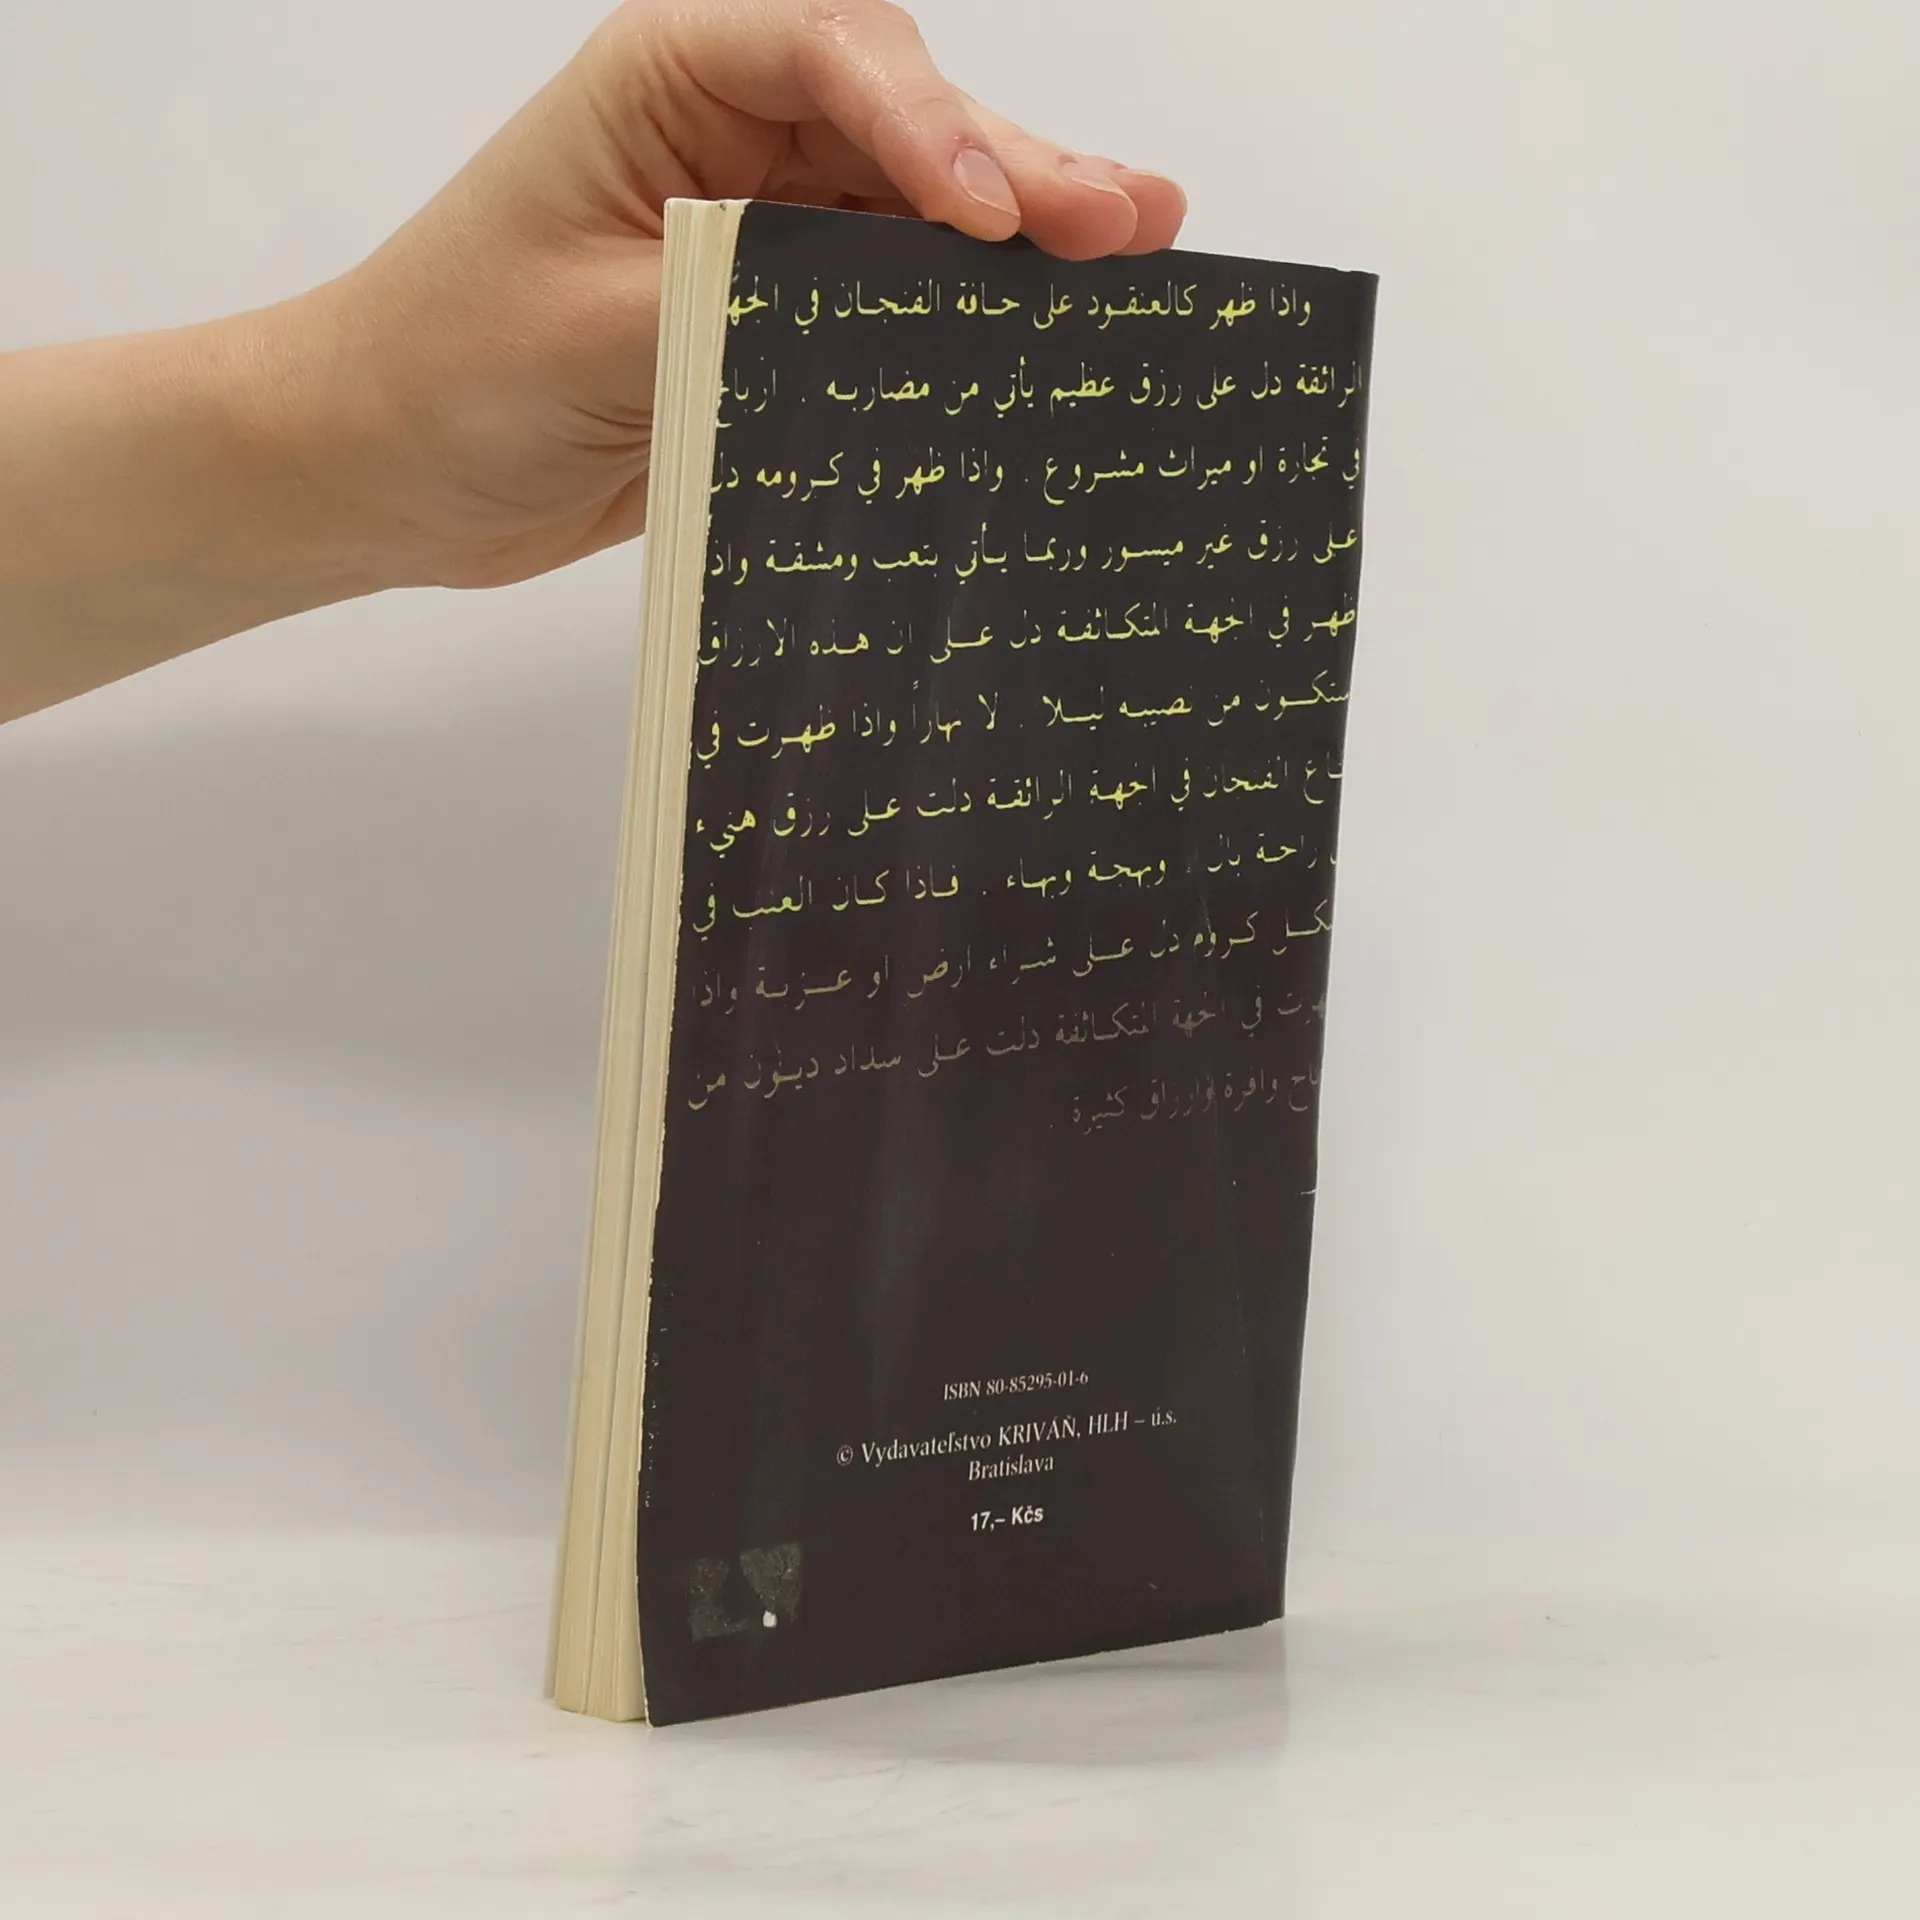 واذا ظهر كالعنقـود على حـافة الفنجـان في الجهـ
الرائقة دل على رزق عظيم يأتي من مضاربـه . ارباح
في تجارة او ميراث مشـروع . واذا ظهر في كـرومه دل
عـلى رزق غير ميسـور وربمـا يـأتي بتعب ومشقـة واذ
ظهـر في الجهـة المتكـاثفـة دل عـلى ان هـذه الارزاق
ستكـون من نصيبـه ليـلا . لا نهاراً واذا ظهـرت في
الفنجان في الجهـة الرائقـة دلت عـلى رزق هنيء
راحـة بال . وبهجـة وبهـاء . فـاذا كـان العنب في
كـروم دل عـلى شـراء ارض او عـزبـة واذا
في الجهة المتكـاثفة دلت عـلى سداد ديـون من
وافرة وارزاق كثيرة .
ISBN 80-85295-01-6
© Vydavateľstvo KRIVÁŇ, HLH – ú.s.
Bratislava
17,– Kčs